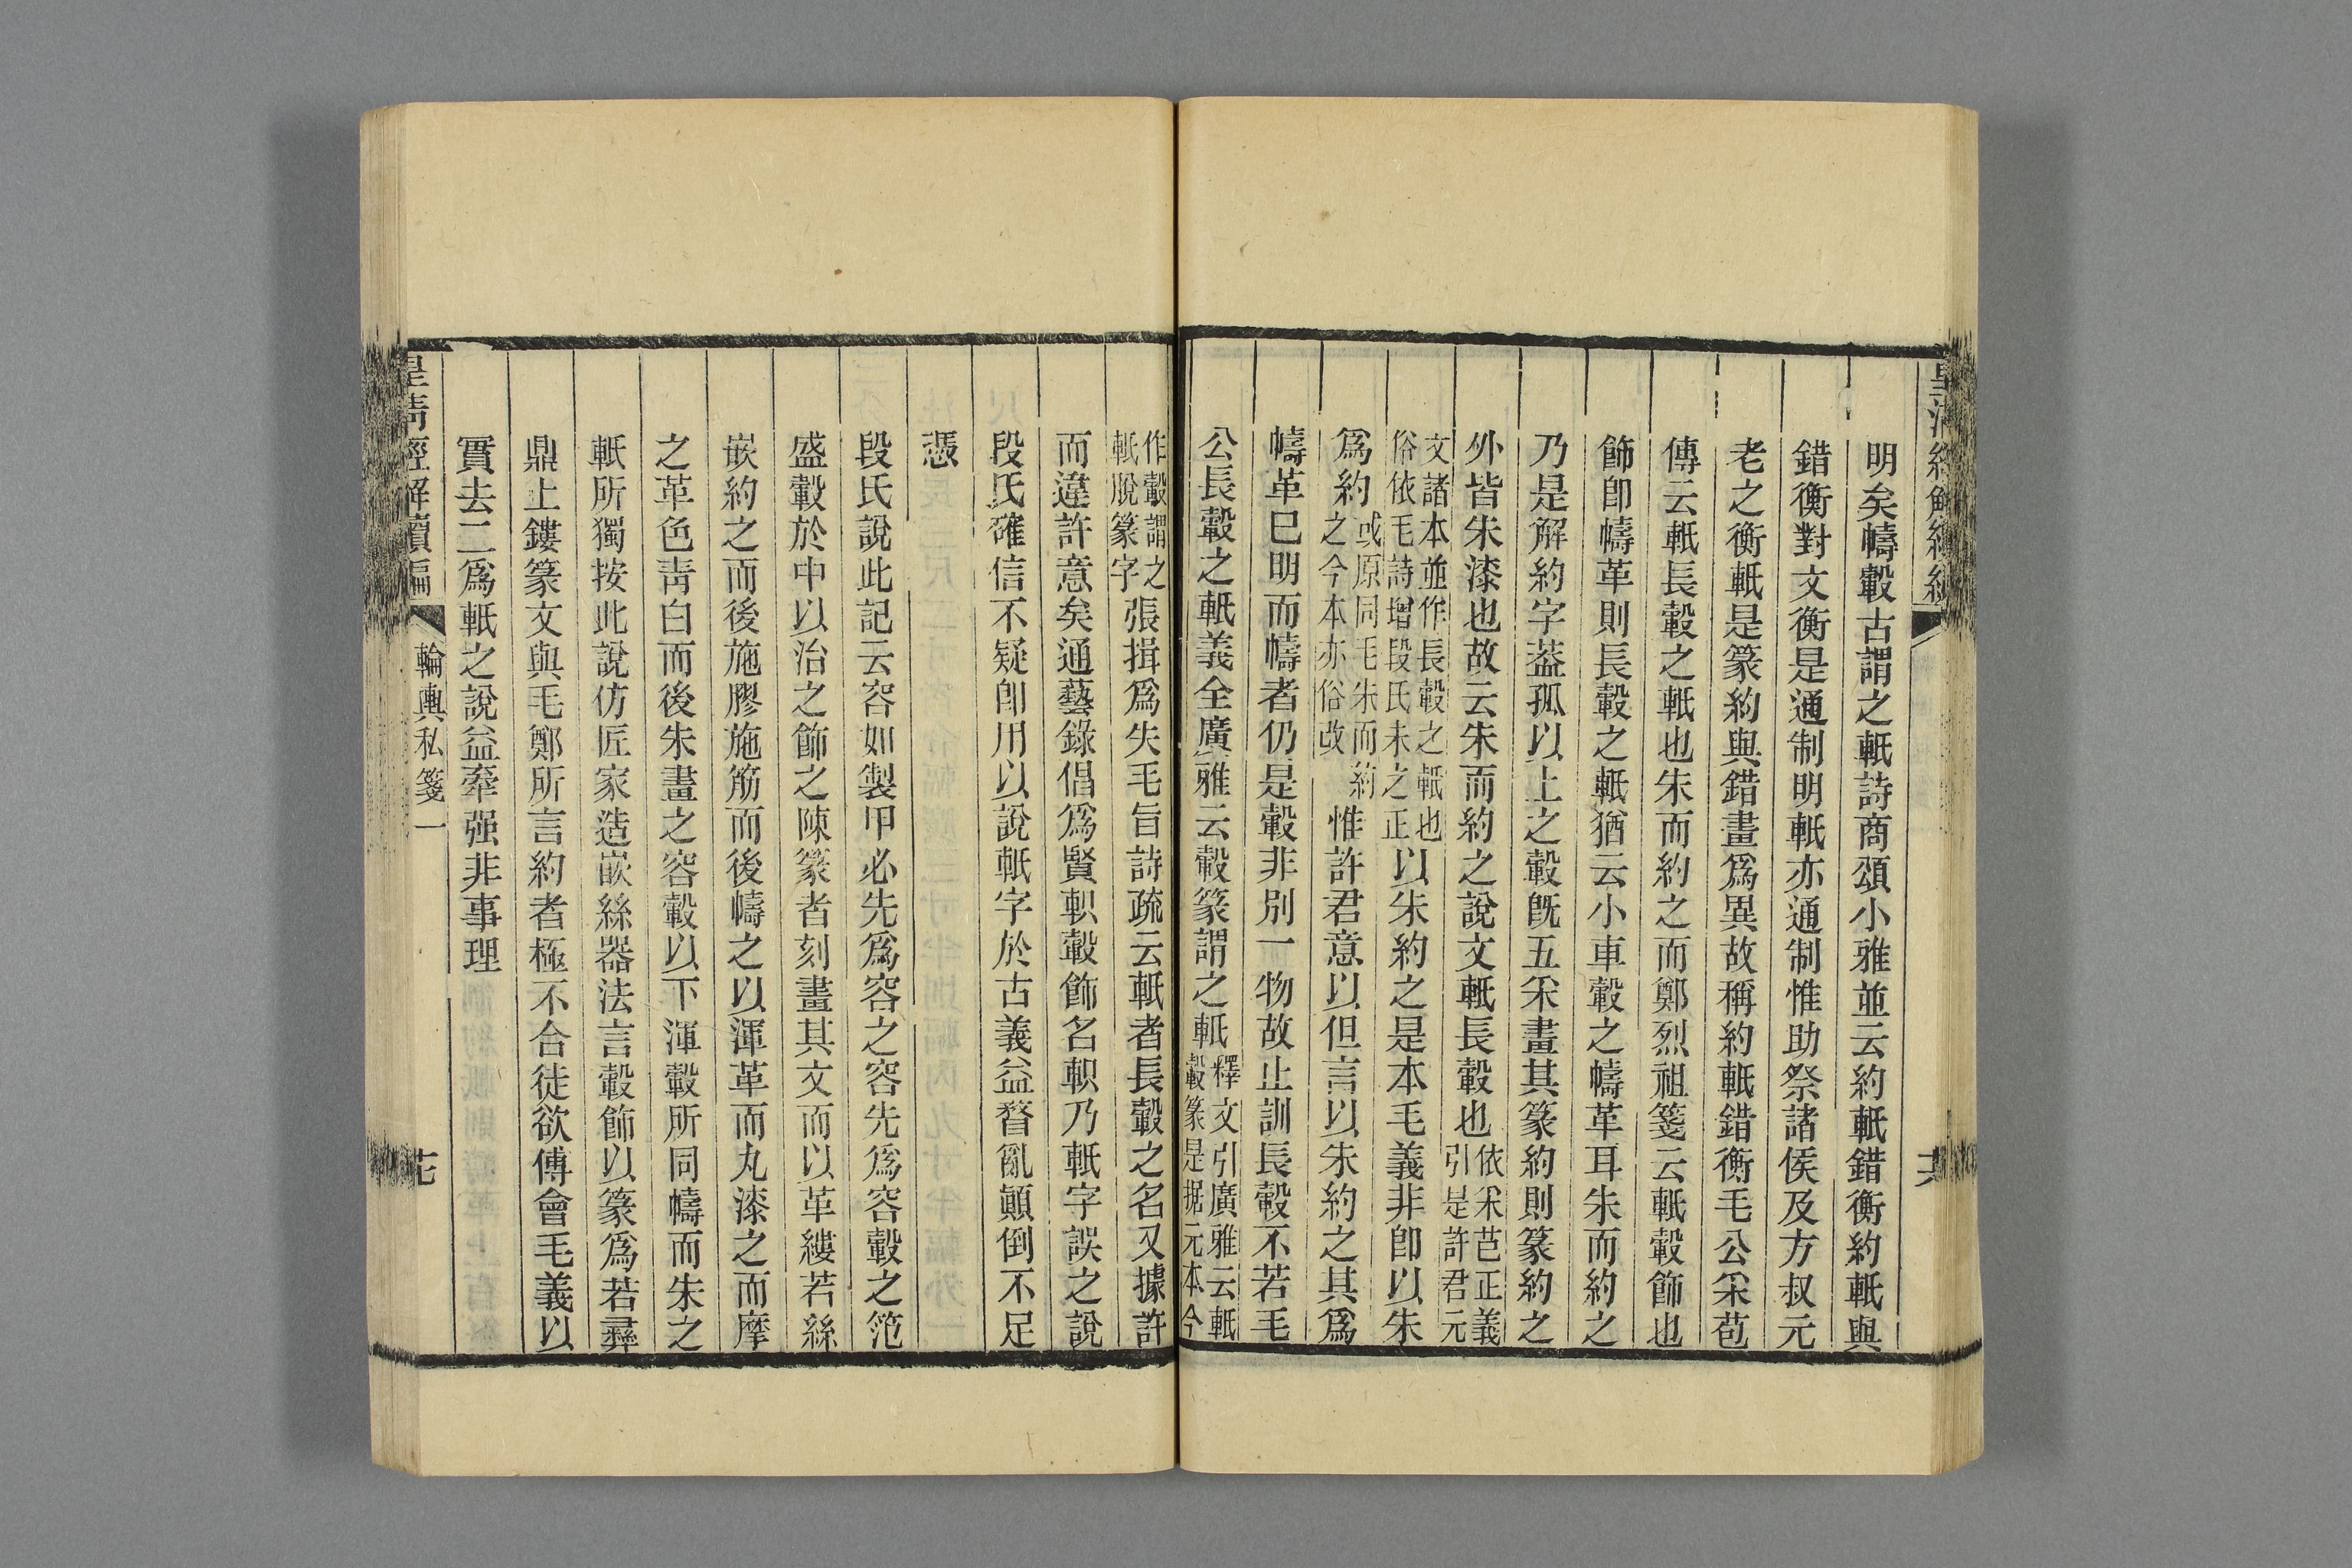 皇清經解續編
六
明矣幬轂古謂之軝詩商頌小雅並云約軝錯衡約軝與
錯衡對文衡是通制明軝亦通制惟助祭諸侯及方叔元
老之衡軝是篆約與錯畫爲異故稱約軝錯衡毛公采芑
傳云軝長轂之軝也朱而約之而鄭烈祖箋云軝轂飾也
飾卽幬革則長轂之軝猶云小車轂之幬革耳朱而約之
乃是解約字葢孤以上之轂旣五采畫其篆約則篆約之
外皆朱漆也故云朱而約之說文軝長轂也依采芑正義引是許君元
文諸本並作長轂之軝也俗依毛詩增段氏未之正以朱約之是本毛義非卽以朱
爲約或原同毛朱而約之今本亦俗改惟許君意以但言以朱約之其爲
幬革巳明而幬者仍是轂非別一物故止訓長轂不若毛
公長轂之軝義全廣雅云轂篆謂之軝釋文引廣雅云軝轂篆是据元本今
作轂謂之軝脫篆字張揖爲失毛旨詩疏云軝者長轂之名又據許
而違許意矣通藝錄倡爲賢軹轂飾名軹乃軝字誤之說
段氏確信不疑卽用以說軝字於古義益瞀亂顛倒不足
憑
段氏說此記云容如製甲必先爲容之容先爲容轂之笵
盛轂於中以治之飾之陳篆者刻畫其文而以革縷若絲
嵌約之而後施膠施筋而後幬之以渾革而丸漆之而摩
之革色靑白而後朱畫之容轂以下渾轂所同幬而朱之
軝所獨按此說仿匠家造嵌絲器法言轂飾以篆爲若彝
鼎上鏤篆文與毛鄭所言約者極不合徒欲傅會毛義以
實去二爲軝之說益牽强非事理
皇清經解續編
輪輿私箋一
七